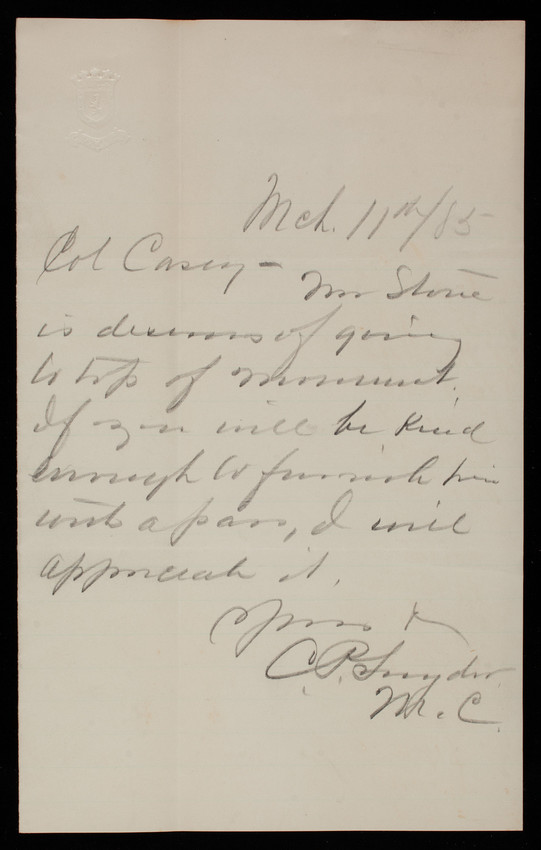 Mch. 11th/85
Col Casey –
Mr Stone
is desirous of going
to top of monument.
If you will be kind
enough to furnish him
with a pass, I will
appreciate it.
Yours &c
C. P. Snyder
M. C.